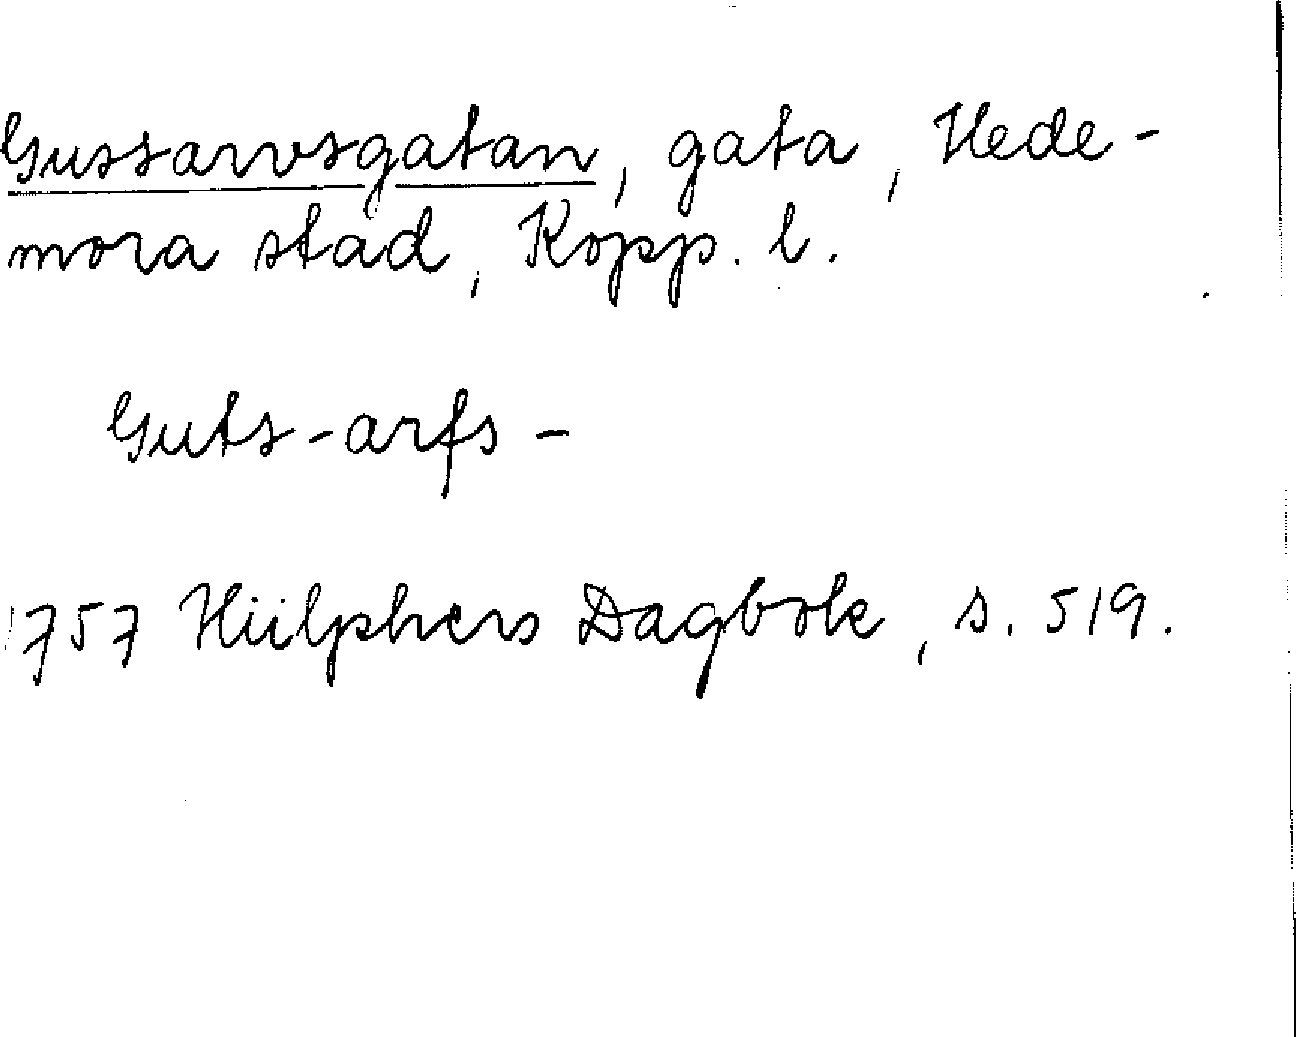 Gussarvsgatan, gata, Hede-
mora stad, Kopp. l.
Guts-arfs-
1757 Hülphers Dagbok, s. 519.